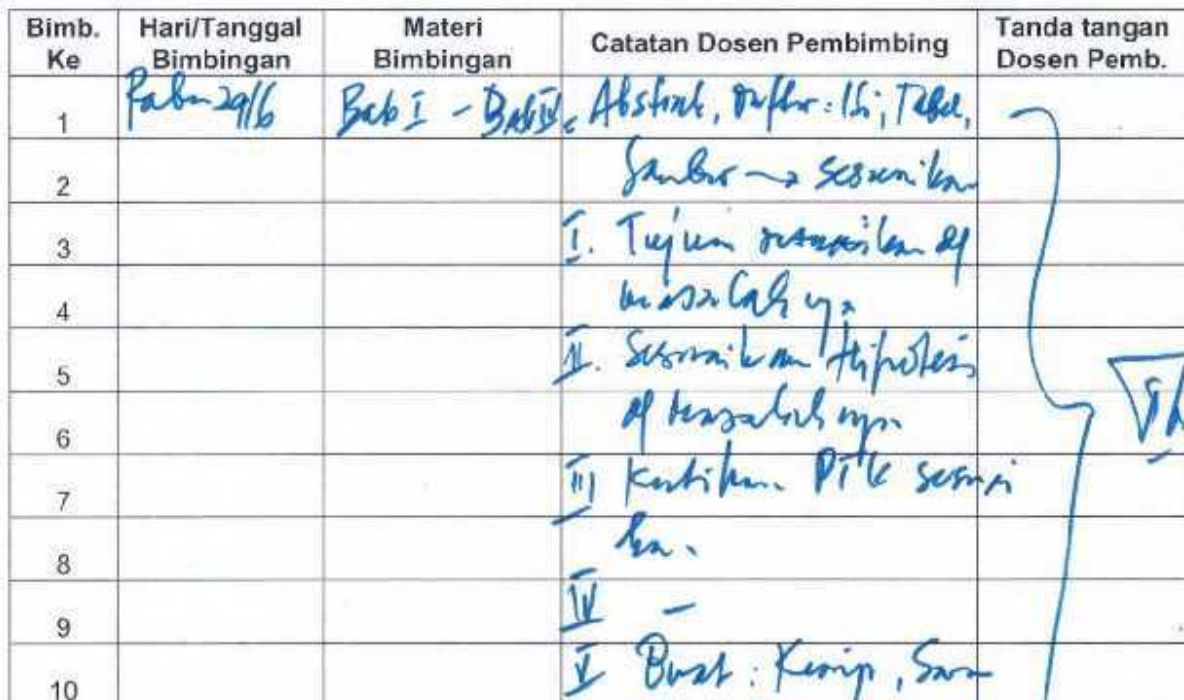 Bimb. Ke Hari/Tanggal Bimbingan Materi Bimbingan Catatan Dosen Pembimbing Tanda tangan Dosen Pemb.
1 Rabu 29/6 Bab I - Bab IV Abstrak, Daftar: Isi, Tabel,
2 Gambar → sesuaikan
3 I. Tujuan sesuaikan dg
4 masalahnya
5 II. Sesuaikan Hipotesis
6 dg masalahnya
7 III Kutipan PTK sesuai
8 kan.
9 IV -
10 V Buat: Kesimp, Saran